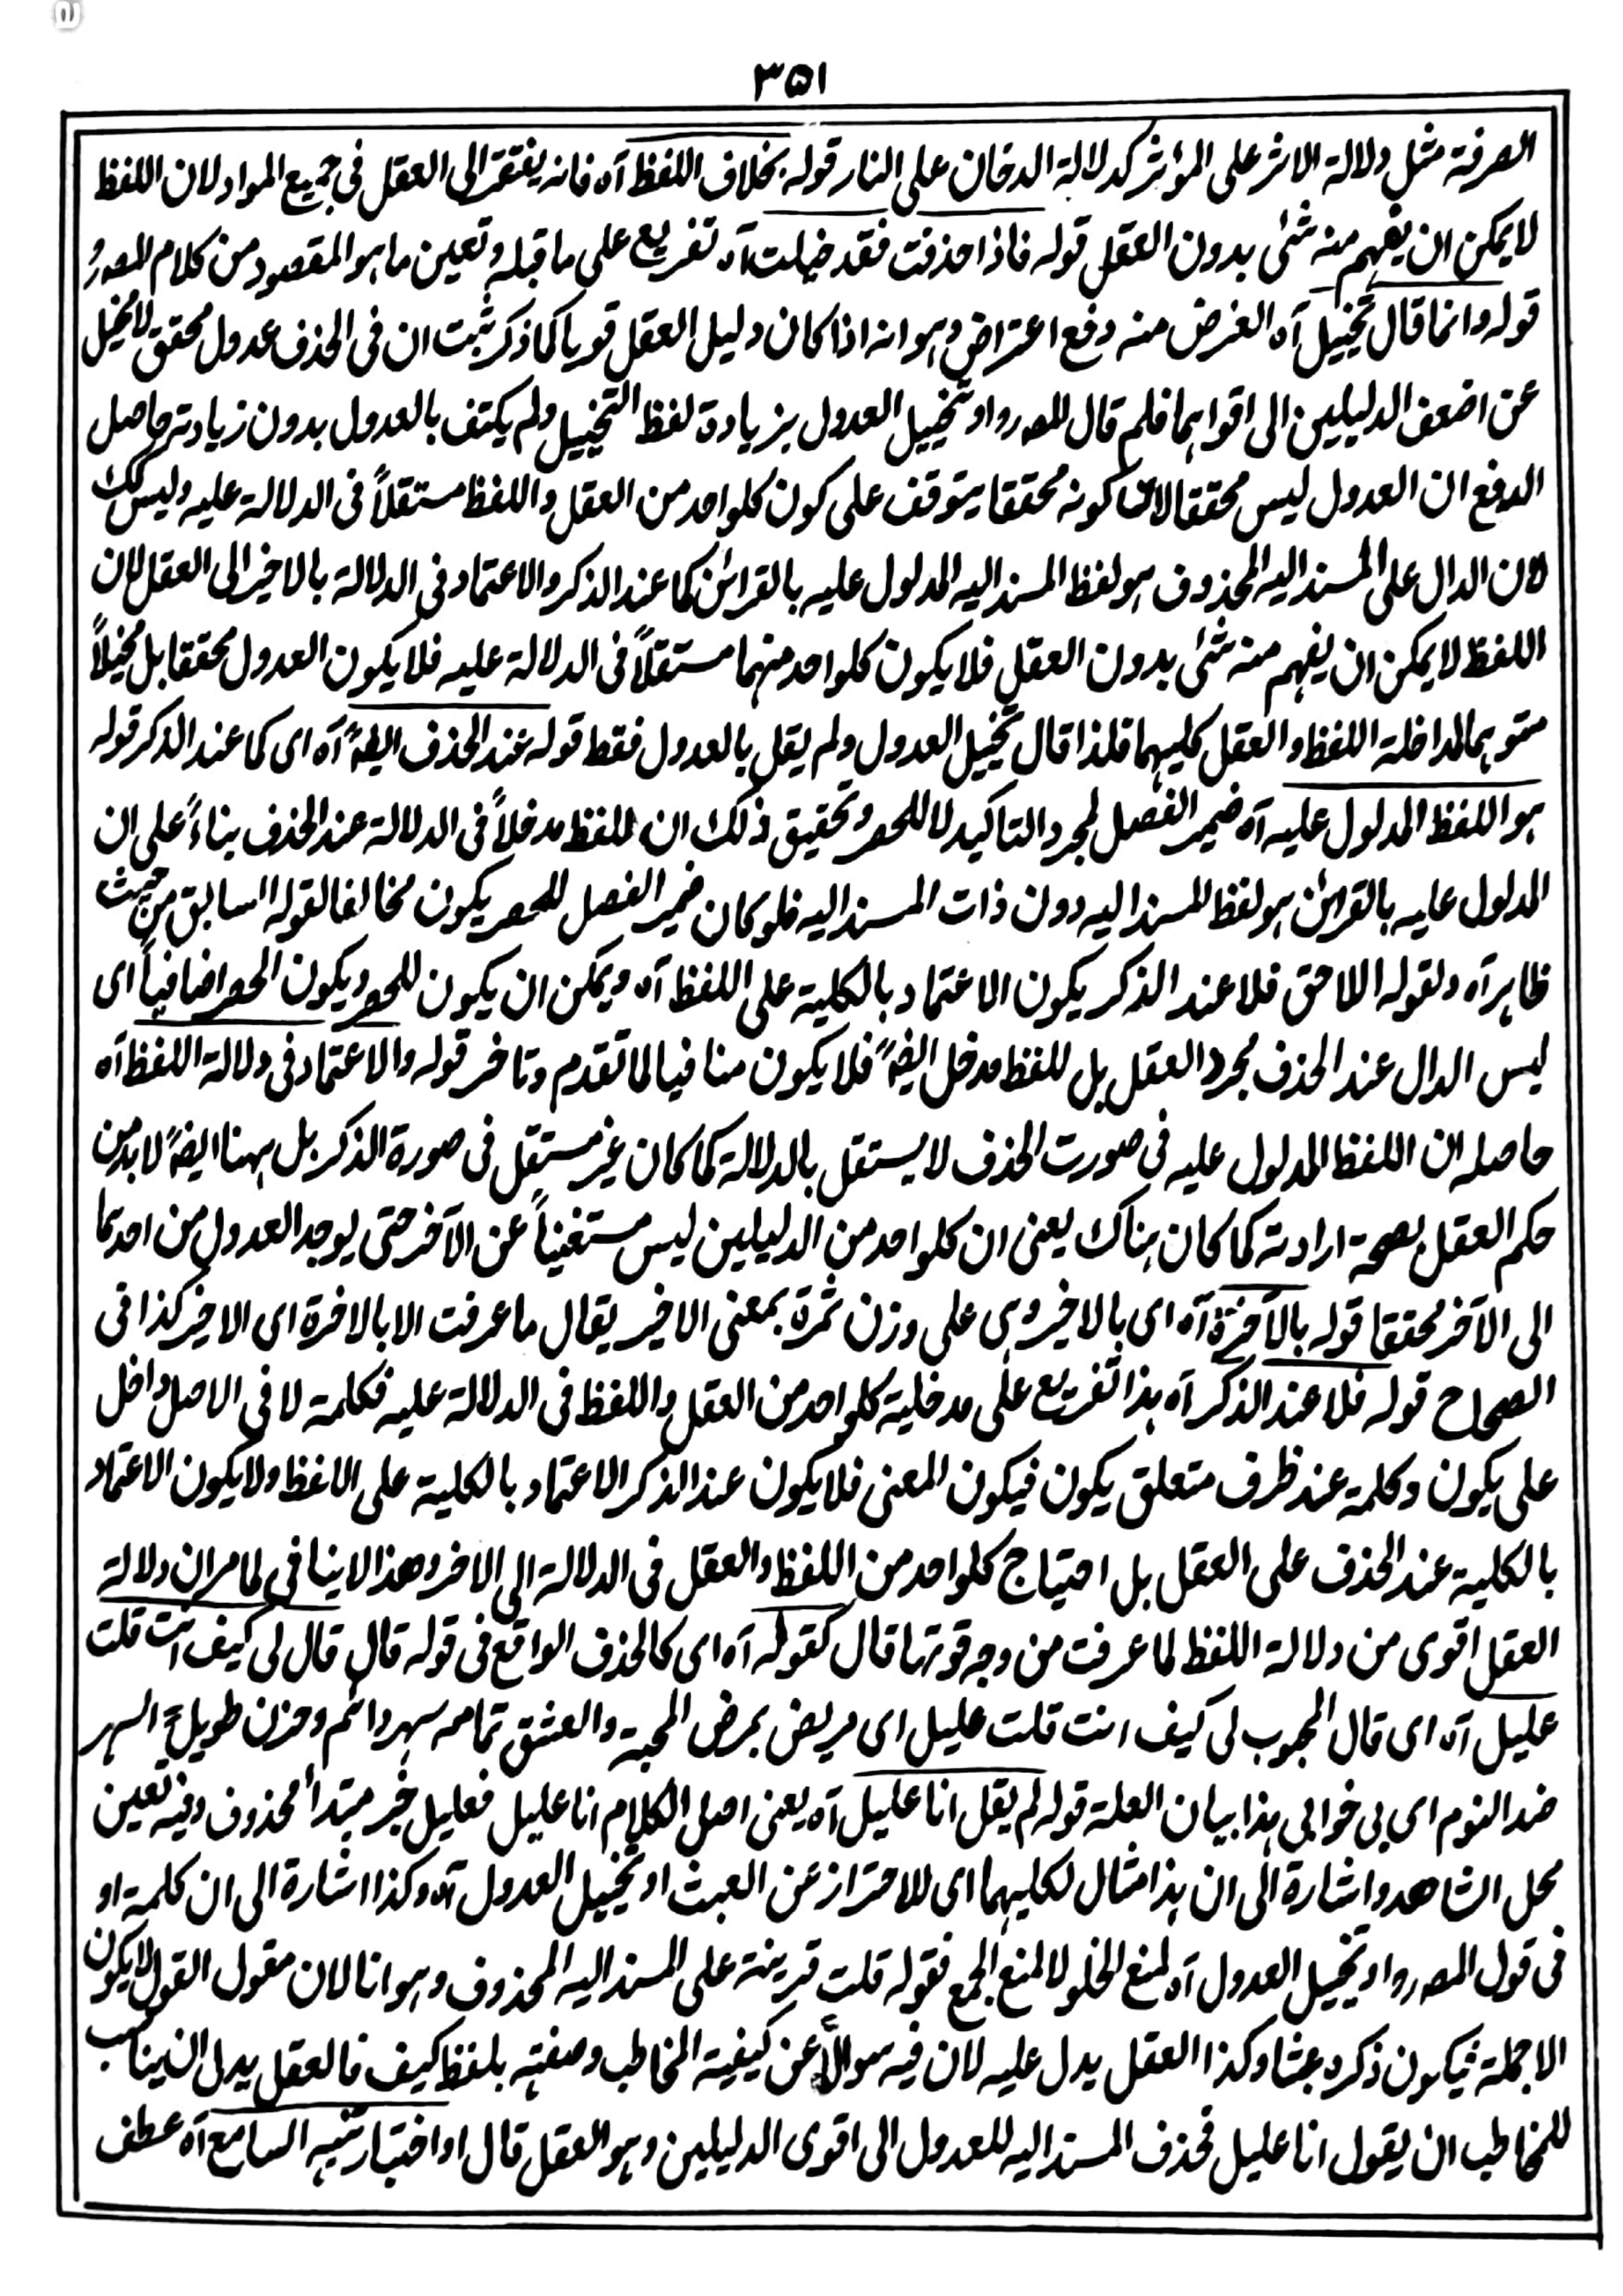 ٣٥١
الصرفة مثل دلالة الاثر على المؤثر كدلالة الدخان على النار قوله بخلاف اللفظ آه فانه يفتقر الى العقل فى جميع المواد لان اللفظ
لا يمكن ان يفهم منه شئ بدون العقل قوله فاذا حذفت فقد خيلت آه تفريع على ما قبله وتعين ما هو المقصود من كلام المصرؒ
قوله وانما قال تخييل آه الغرض منه دفع اعتراض وهو انه اذا كان دليل العقل قويا كما ذكر ثبت ان فى الحذف عدول محقق لا تخيل
عن اضعف الدليلين الى اقواهما فلم قال المصر او تخييل العدول بزيادة لفظ التخييل ولم يكتف بالعدول بدون زيادته حاصل
الدفع ان العدول ليس محققا لان كونه محققا يتوقف على كون كلواحد من العقل واللفظ مستقلاً فى الدلالة عليه وليس كك
لان الدال على المسند اليه المحذوف هو لفظ المسند اليه المدلول عليه بالقرائن كما عند الذكر والاعتماد فى الدلالة بالاخير الى العقل لان
اللفظ لا يمكن ان يفهم منه شئ بدون العقل فلا يكون كلواحد منهما مستقلاً فى الدلالة عليه فلا يكون العدول محققا بل مخيلاً
متوهما لمداخلة اللفظ والعقل كليهما فلذا قال تخييل العدول ولم يقل بالعدول فقط قوله عند الحذف ايضاً آه اى كما عند الذكر قوله
هو اللفظ المدلول عليه آه ضمير الفصل لمجرد التاكيد لا للحصر وتحقيق ذلك ان للفظ مدخلاً فى الدلالة عند الحذف بناءً على ان
المدلول عليه بالقرائن هو لفظ المسند اليه دون ذات المسند اليه فلو كان ضمير الفصل للحصر يكون مخالفا لقوله السابق من حيث
ظاهر آه ولقوله اللاحق فلا عند الذكر يكون الاعتماد بالكلية على اللفظ آه ويمكن ان يكون للحصر ويكون الحصر اضافياً اى
ليس الدال عند الحذف مجرد العقل بل للفظ مدخل ايضاً فلا يكون منافيا لما تقدم وتاخر قوله والاعتماد فى دلالة اللفظ آه
حاصله ان اللفظ المدلول عليه فى صورت الحذف لا يستقل بالدلالة كما كان غير مستقل فى صورة الذكر بل ههنا ايضاً لا بد من
حكم العقل بصحة ارادته كما كان هناك يعنى ان كلواحد من الدليلين ليس مستغنياً عن الآخر حتى يوجد العدول من احدهما
الى الآخر محققا قوله بالآخرة آه اى بالاخير وهى على وزن ثمرة بمعنى الاخير يقال ما عرفت الا بالاخرة اى الاخير كذا فى
الصحاح قوله فلا عند الذكر آه هذا تفريع على مدخلية كلواحد من العقل واللفظ فى الدلالة عليه فكلمة لا فى الاصل داخل
على يكون وكلمة عند ظرف متعلق يكون فيكون المعنى فلا يكون عند الذكر الاعتماد بالكلية على اللفظ ولا يكون الاعتماد
بالكلية عند الحذف على العقل بل احتياج كلواحد من اللفظ والعقل فى الدلالة الى الاخر وهذا لا ينافى لما مر ان دلالة
العقل اقوى من دلالة اللفظ لما عرفت من وجه قوتها قال كقوله آه اى كالحذف الواقع فى قوله قال قال لى كيف انت قلت
عليل آه اى قال المحبوب لى كيف انت قلت عليل اى مريض بمرض المحبة والعشق تمامه سهر دائم وحزن طويل؎ السهر
ضد النوم اى بى خوابى هذا بيان العلة قوله لم يقل انا عليل آه يعنى اصل الكلام انا عليل فعليل خبر مبتدأ محذوف وفيه تعين
محل الشاهد واشارة الى ان هذا مثال لكليهما اى للاحتراز عن العبث او تخييل العدول آه وكذا اشارة الى ان كلمة او
فى قول المصر او تخييل العدول آه لمنع الخلو لا لمنع الجمع فقوله قلت قرينة على المسند اليه المحذوف وهو انا لان مقول القول لا يكون
الا جملة فيكون ذكره عبثا وكذا العقل يدل عليه لان فيه سوالاً عن كيفية المخاطب وصفته بلفظ كيف فالعقل يدل ان يناسب
للمخاطب ان يقول انا عليل فحذف المسند اليه للعدول الى اقوى الدليلين وهو العقل قال او اختبار تنبه السامع آه عطف